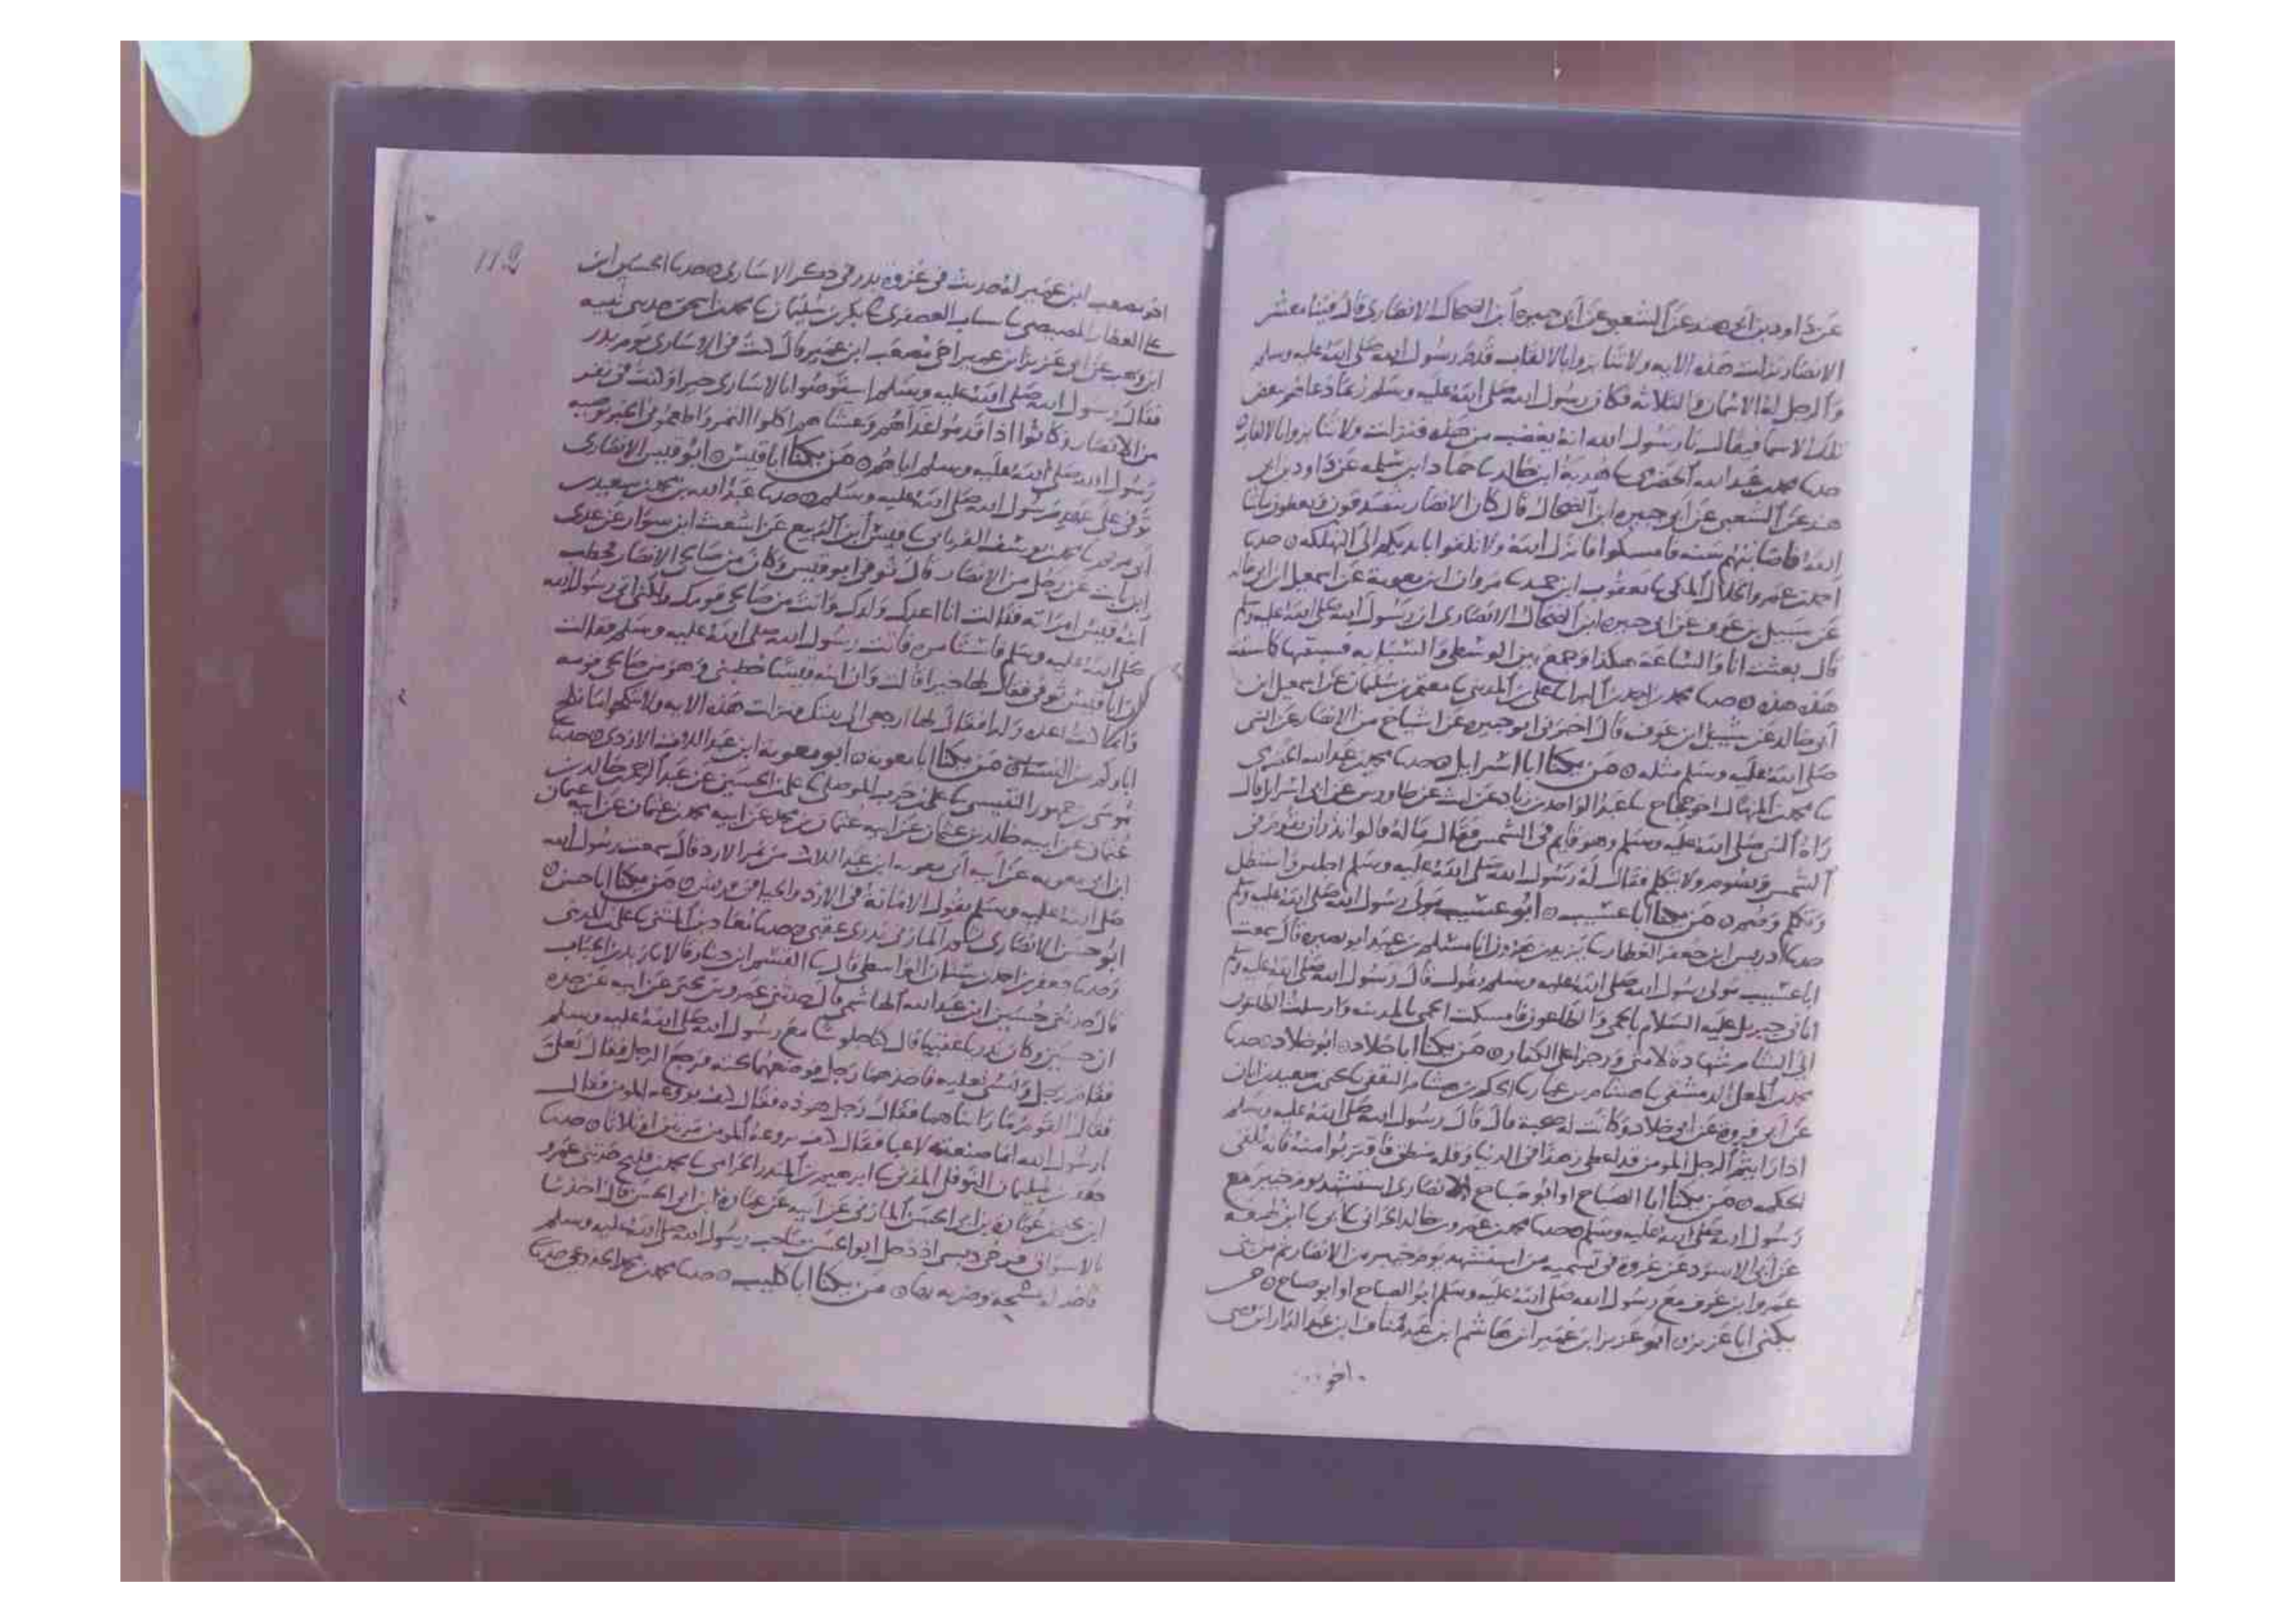 عن داود بن ابي هند عن الشعبي عن ابي جبيرة ابن الضحاك الانصاري قال فينا معشر
الانصار نزلت هذه الايه ولا تنابزوا بالالقاب قدم رسول الله صلى الله عليه وسلم
والرجل له الاثنان والثلاثه فكان رسول الله صلى الله عليه وسلم ربما دعاهم ببعض
تلك الاسما فيقال يا رسول الله انه يغضب من هذه فنزلت ولا تنابزوا بالالقاب
حدثنا محمد بن عبد الله الحضرمي ثنا هدبة ابن خالد ثنا حماد ابن سلمه عن داود بن ابي
هند عن الشعبي عن ابي جبيرة ابن الضحاك قال كان الانصار يتصدقون ويعطون ما شا
الله فاصابتهم سنه فامسكوا فانزل الله ولا تلقوا بايديكم الى التهلكه حدثنا
احمد بن عمرو الخلال المكي ثنا يعقوب ابن حميد ثنا مروان ابن معوية عن اسمعيل ابن ابي خالد
عن شبيل بن عوف عن ابي جبيره ابن الضحاك الانصاري ان رسول الله صلى الله عليه وسلم
قال بعثت انا والساعة هكذا وجمع بين الوسطى والسبابه فسبقتها كما سبقت
هذه هذه حدثنا محمد بن احمد بن البرا ثنا علي بن المديني ثنا معتمر بن سليمان عن اسمعيل ابن
ابي خالد عن شبيل ابن عوف قال اخبرني ابو جبيره عن اشياخ من الانصار عن النبي
صلى الله عليه وسلم مثله من يكنا ابا اسرايل حدثنا محمد بن عبد الله الحضرمي
ثنا محمد بن المنهال اخو حجاج ثنا عبد الواحد بن زياد عن ليث عن طاوس عن ابي اسرايل قال
راه النبي صلى الله عليه وسلم وهو قايم في الشمس فقال ماله قالوا نذر ان يقوم في
الشمس ويصوم ولا يتكلم فقال له رسول الله صلى الله عليه وسلم اجلس واستظل
وتكلم وصم من يكنا ابا عسيب ابو عسيب مولى رسول الله صلى الله عليه وسلم
حدثنا ادريس ابن جعفر العطار ثنا يزيد بن هرون انا مسلم بن عبيد ابو نصيره قال سمعت
ابا عسيب مولى رسول الله صلى الله عليه وسلم يقول قال رسول الله صلى الله عليه وسلم
اتاني جبريل عليه السلام بالحمى والطاعون فامسكت الحمى بالمدينه وارسلت الطاعون
الى الشام شهادة لامتي ورجزا على الكفار من يكنا ابا خلاد ابو خلاد حدثنا
محمد بن المعلى الدمشقي ثنا هشام بن عمار ثنا الحكم بن هشام الثقفي ثنا يحيى بن سعيد بن ابان
عن ابي فروة عن ابي خلاد وكانت له صحبة قال قال رسول الله صلى الله عليه وسلم
اذا رايتم الرجل المومن قد اعطي زهدا في الدنيا وقله منطق فاقتربوا منه فانه يلقى
الحكمه من يكنا ابا الصباح او ابو صباح الانصاري استشهد يوم خيبر مع
رسول الله صلى الله عليه وسلم حدثنا محمد بن عمرو بن خالد الحراني ثنا ابي ثنا ابن لهيعه
عن ابي الاسود عن عروة في تسميه من استشهد يوم خيبر من الانصار ثم من بني
عمرو ابن عوف مع رسول الله صلى الله عليه وسلم ابو الصباح او ابو صباح من
يكنى ابا عزيز ابو عزيز ابن عمير ابن هاشم ابن عبد مناف ابن عبد الدار ابن قصي
اخو
112
اخو مصعب ابن عمير له حديث في غزوة بدر في ذكر الاسارى حدثنا الحسين ابن
علي العطار المصيصي ثنا شباب العصفري ثنا بكر بن سليمان ثنا محمد بن اسحق حدثني نبيه
ابن وهب عن ابي عزيز ابن عمير اخي مصعب ابن عمير قال كنت في الاسارى يوم بدر
فقال رسول الله صلى الله عليه وسلم استوصوا بالاسارى خيرا وكنت في نفر
من الانصار وكانوا اذا قدموا غداهم وعشاهم اكلوا التمر واطعموني الخبز بوصيه
رسول الله صلى الله عليه وسلم اياهم من يكنا ابا قيس ابو قيس الانصاري
توفي على عهد رسول الله صلى الله عليه وسلم حدثنا عبد الله بن محمد بن سعيد بن
ابي مريم ثنا محمد بن يوسف الفريابي ثنا قيس ابن الربيع عن اشعث ابن سوار عن عدي
ابن ثابت عن رجل من الانصار قال توفي ابو قيس وكان من صالحي الانصار فخطب
ابنه قيس امراته فقالت انا اعدك ولدا وانت من صالحي قومك ولكني اتي رسول الله
صلى الله عليه وسلم فاستامره فاتت رسول الله صلى الله عليه وسلم فقالت
ان ابا قيس توفي فقال لها خيرا قالت وان ابنه قيسا خطبني وهو من صالحي قومه
وانما كنت اعده ولدا فقال لها ارجعي الى بيتك فنزلت هذه الايه ولا تنكحوا ما نكح
اباوكم من النسا من يكنا ابا معويه ابو معوية ابن عبد اللات الازدي حدثنا
موسى بن جمهور التنيسي ثنا علي بن حرب الموصلي ثنا علي بن الحسين عن عبد الرحمن خالد بن
عثمان عن ابيه خالد بن عثمان عن ابيه عثمان بن محمد عن ابيه محمد بن عثمان عن ابيه عثمان
ابن ابي معويه عن ابيه ابي معويه ابن عبد اللات من نمر الازد قال سمعت رسول الله
صلى الله عليه وسلم يقول الامانة في الازد والحيا في قريش من يكنا ابا حسن
ابو حسن الانصاري ثم المازني بدري عقبي حدثنا معاذ بن المثنى ثنا علي بن المديني
وحدثنا جعفر بن احمد بن سنان الواسطي قال ثنا القسم ابن دينار قالا ثنا زيد بن الحباب
قال حدثني حسين ابن عبد الله الهاشمي قال حدثني عمرو بن يحيى عن ابيه عن جده
ابي حسن وكان بدريا عقبيا قال كنا جلوسا مع رسول الله صلى الله عليه وسلم
فقام رجل ونسي نعليه فاخذهما رجل فوضعهما تحته فرجع الرجل فقال نعلي
فقال القوم ما رايناهما فقال رجل هو ذه فقال كيف بروعه المومن فقال
يا رسول الله انما صنعته لاعبا فقال كيف بروعة المومن مرتين او ثلاثا حدثنا
جعفر بن سليمان النوفلي المدني ثنا ابرهيم بن المنذر الحزامي ثنا محمد بن فليح حدثني عمرو
ابن يحيى بن عمارة بن ابي الحسن المازني عن ابيه عن عمارة ابن ابي الحسن قال اخذنا
بالاسواف اذ دخل ابو الحسن صاحب رسول الله صلى الله عليه وسلم
من يكنا ابا كليب حدثنا محمد بن